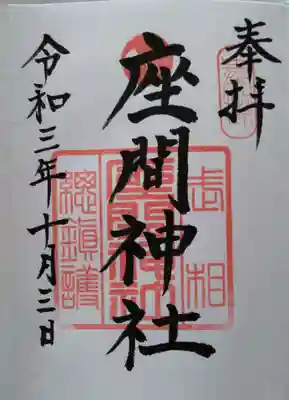 奉拝
座間神社
令和三年十月三日
相武
座間神社
總鎮護